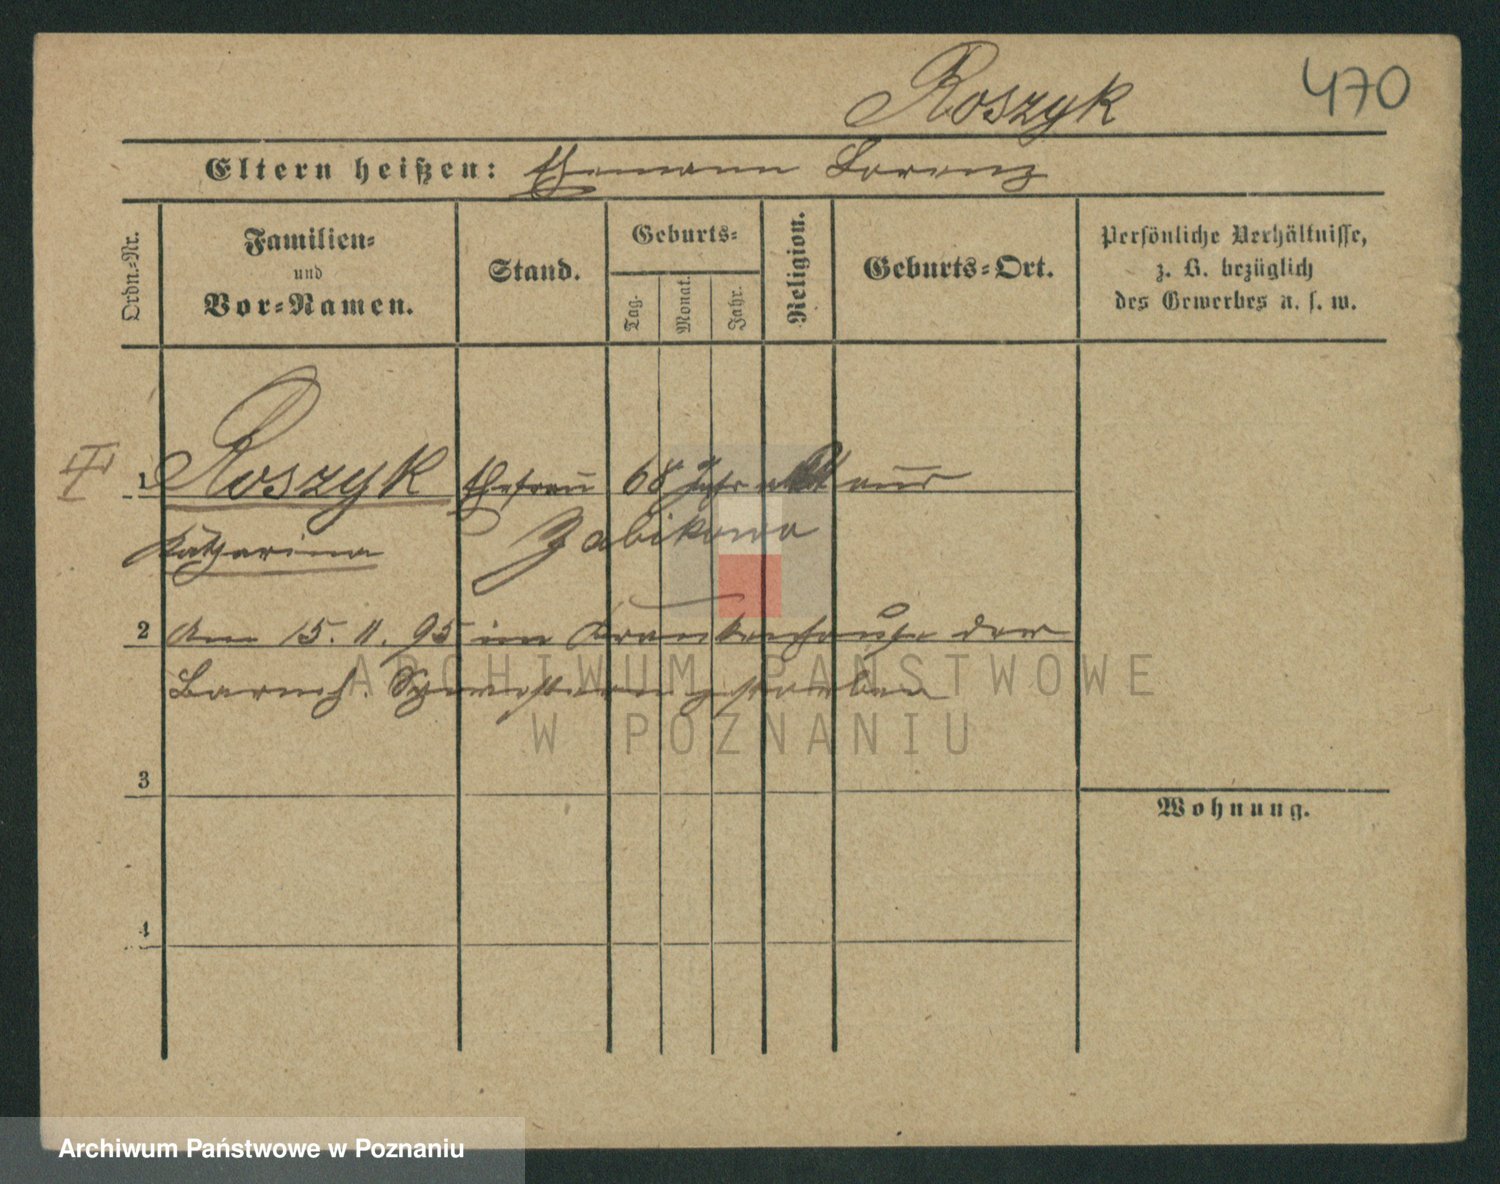 Roszyk
470
Eltern heißen: Ehemann Lorenz
Ordn.-Nr.
Familien-
und
Vor-Namen.
Stand.
Geburts-
Tag.
Monat.
Jahr.
Religion.
Geburts-Ort.
Persönliche Verhältnisse,
z. B. bezüglich
des Gewerbes u. s. w.
1 Roszyk Ehefrau 68 Jahr alt aus
Katharina Zabikowo
2 Am 15. 11. 95 im Krankenhause der
Barmh. Schwestern gestorben
ARCHIWUM PAŃSTWOWE
W POZNANIU
3
Wohnung.
4
Archiwum Państwowe w Poznaniu